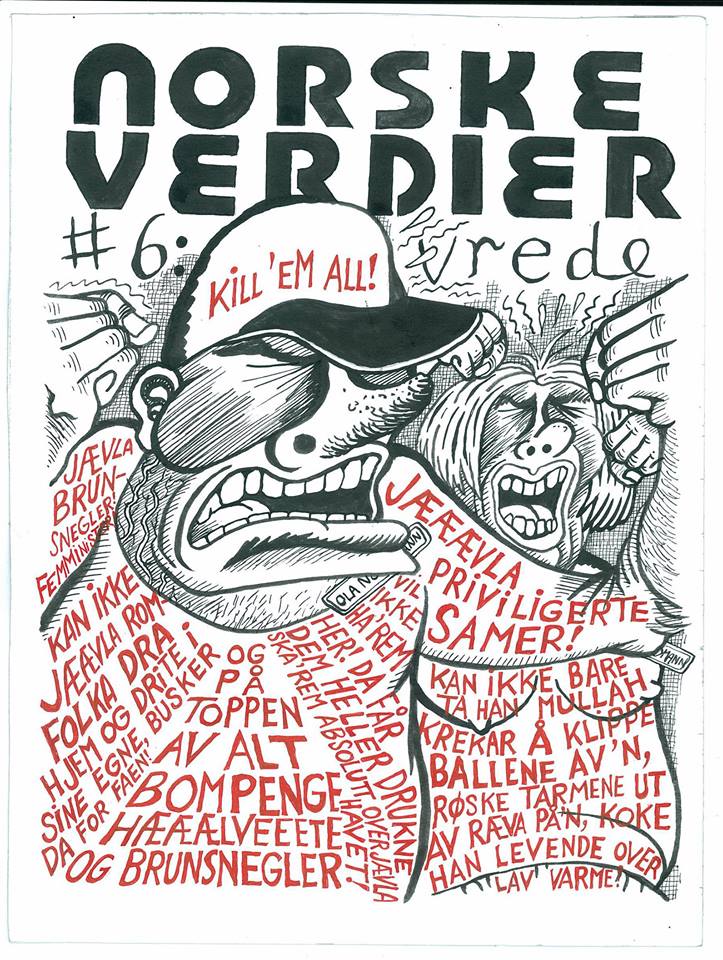 NORSKE
VERDIER
#6: vrede
KILL 'EM ALL!
JÆVLA
BRUN-
SNEGLER!
FEMMINISTER!
KAN IKKE
JÆÆVLA ROM-
FOLKA DRA
HJEM OG DRITE I
SINE EGNE BUSKER
DA FOR FAEN!
OG
PÅ
TOPPEN
AV ALT
BOMPENGE
HÆÆÆLVEEETE
OG BRUNSNEGLER!
VIL
IKKE
HA'REM
HER! DA FÅR
DEM HELLER DRUKNE
SKA'REM ABSOLUTT OVER JÆVLA
HAVET!
OLA
MANN
JÆÆÆVLA
PRIVILIGERTE
SAMER!
MANN
KAN IKKE BARE
TA HAN MULLAH
KREKAR Å KLIPPE
BALLENE AV'N,
RØSKE TARMENE UT
AV RÆVA PÅ'N, KOKE
HAN LEVENDE OVER
LAV VARME!